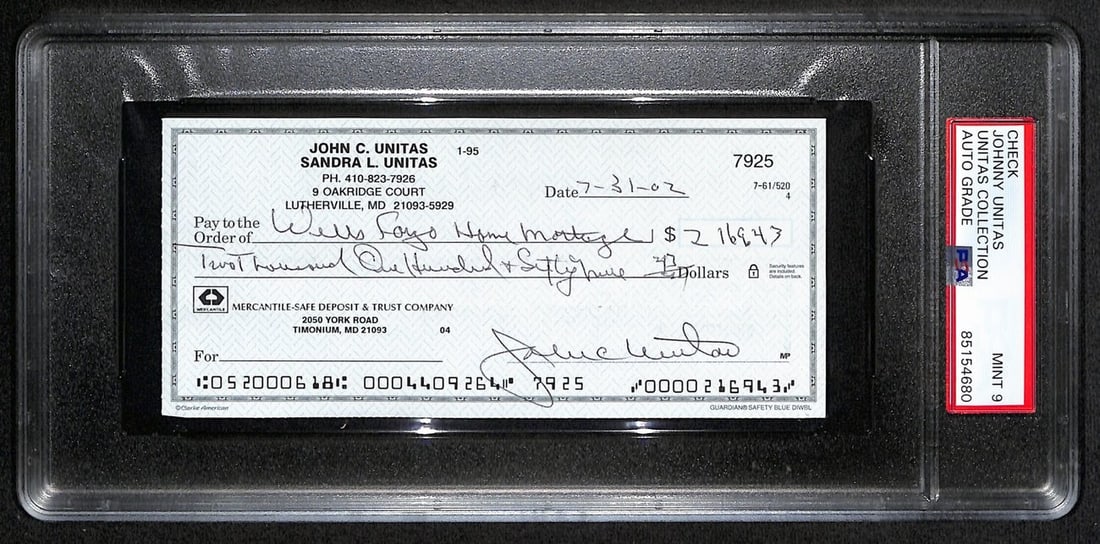 JOHN C. UNITAS 1-95
SANDRA L. UNITAS
PH. 410-823-7926
9 OAKRIDGE COURT
LUTHERVILLE, MD 21093-5929
7925
7-61/520
4
Date 7-31-02
Pay to the
Order of Wells Fargo Home Mortgage $ 2169.43
Two Thousand One Hundred & Sixty nine 43 Dollars
Security features
are included.
Details on back.
MERCANTILE
MERCANTILE-SAFE DEPOSIT & TRUST COMPANY
2050 YORK ROAD
TIMONIUM, MD 21093 04
For
John C Unitas
MP
⑆052000618⑆ 0004409264⑈ 7925 ⑈0000216943⑈
©Clarke American
GUARDIAN® SAFETY BLUE DIWBL
CHECK
JOHNNY UNITAS
UNITAS COLLECTION
AUTO GRADE
MINT 9
85154680
PSA